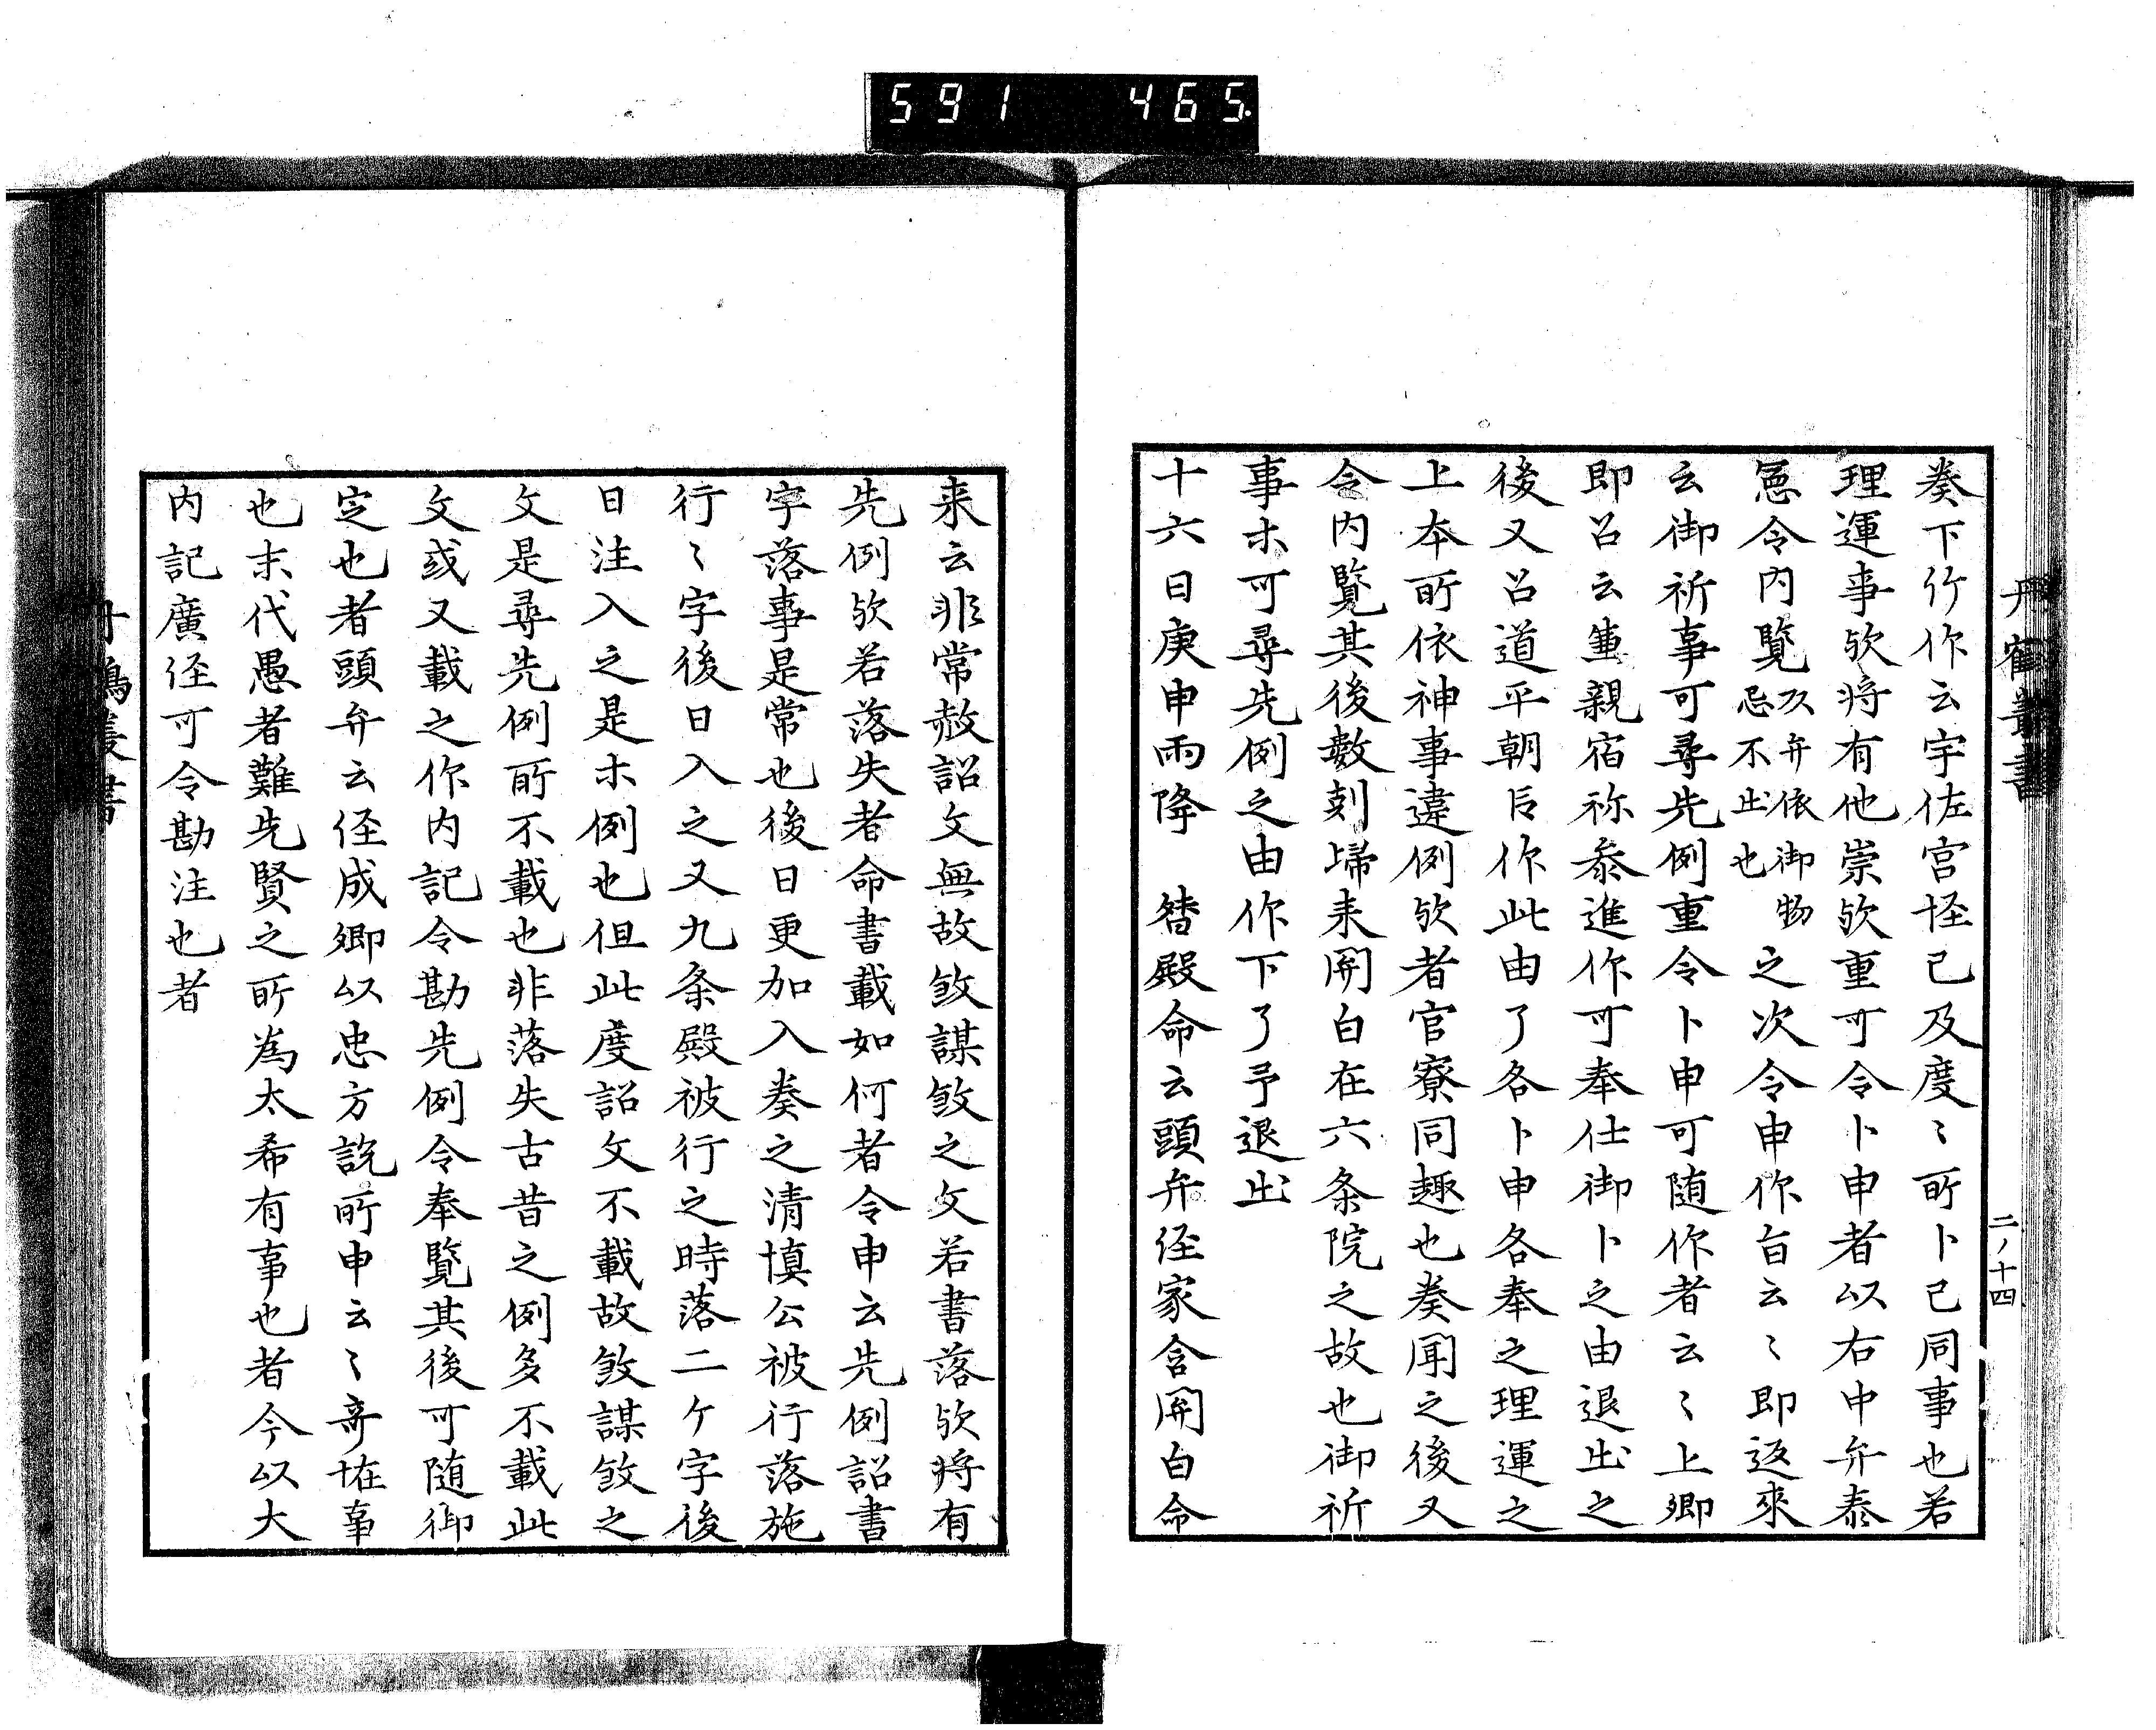 591 465
丹鶴叢書
二ノ十四
奏下竹作云宇佐宮怪已及度〻所卜已同事也若
理運事欤将有他祟欤重可令卜申者以右中弁泰
憲令内覧及弁依御物忌不出也之次令申作旨云〻即返來
云御祈事可尋先例重令卜申可随作者云〻上卿
即召云兼親宿祢参進作可奉仕御卜之由退出之
後又召道平朝臣作此由了各卜申各奉之理運之
上本所依神事違例欤者官寮同趣也奏聞之後又
令内覧其後數刻歸来関白在六条院之故也御祈
事ホ可尋先例之由作下了予退出
十六日庚申雨降 督殿命云頭弁経家含関白命
来云非常赦詔文無故敓謀敓之文若書落欤将有
先例欤若落失者命書載如何者令申云先例詔書
字落事是常也後日更加入奏之清慎公被行落施
行〻字後日入之又九条殿被行之時落二ケ字後
日注入之是ホ例也但此度詔文不載故敓謀敓之
文是尋先例所不載也非落失古昔之例多不載此
文或又載之作内記令勘先例令奉覧其後可随御
定也者頭弁云経成卿以忠方説所申云〻奇恠事
也末代愚者難先賢之所為太希有事也者今以大
内記廣経可令勘注也者
丹鶴叢書